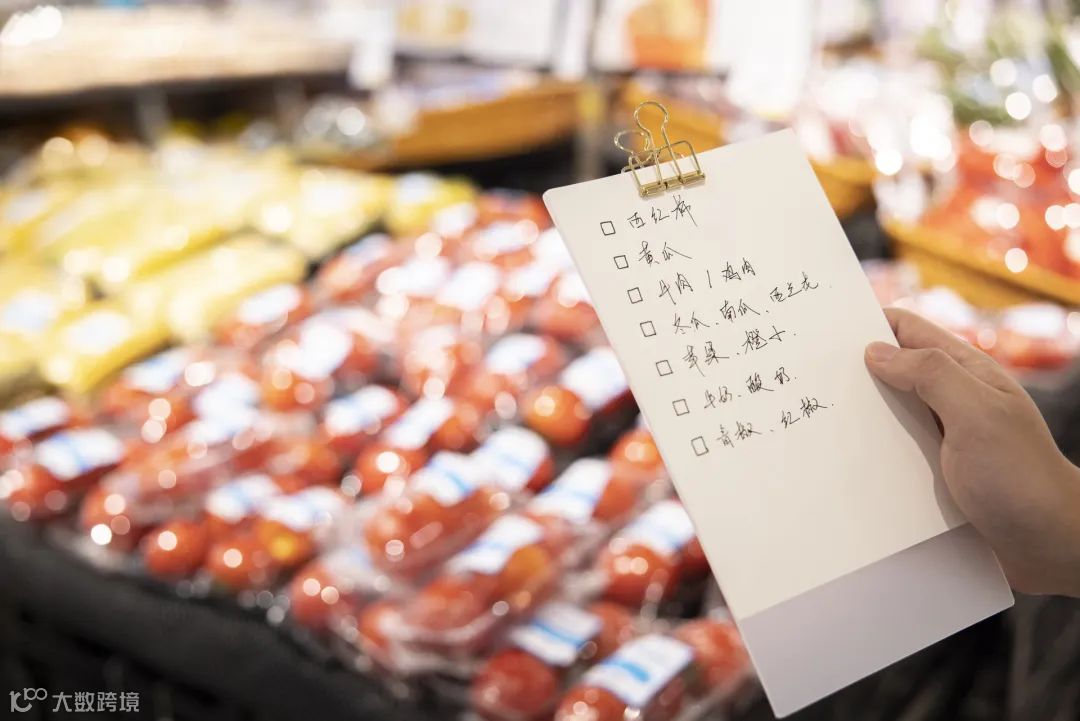 □ 西红柿
□ 黄瓜
□ 牛肉 / 鸡肉
□ 冬瓜、南瓜、西兰花.
□ 苹果、橙子.
□ 牛奶、酸奶.
□ 青椒、红椒.
100 大数跨境